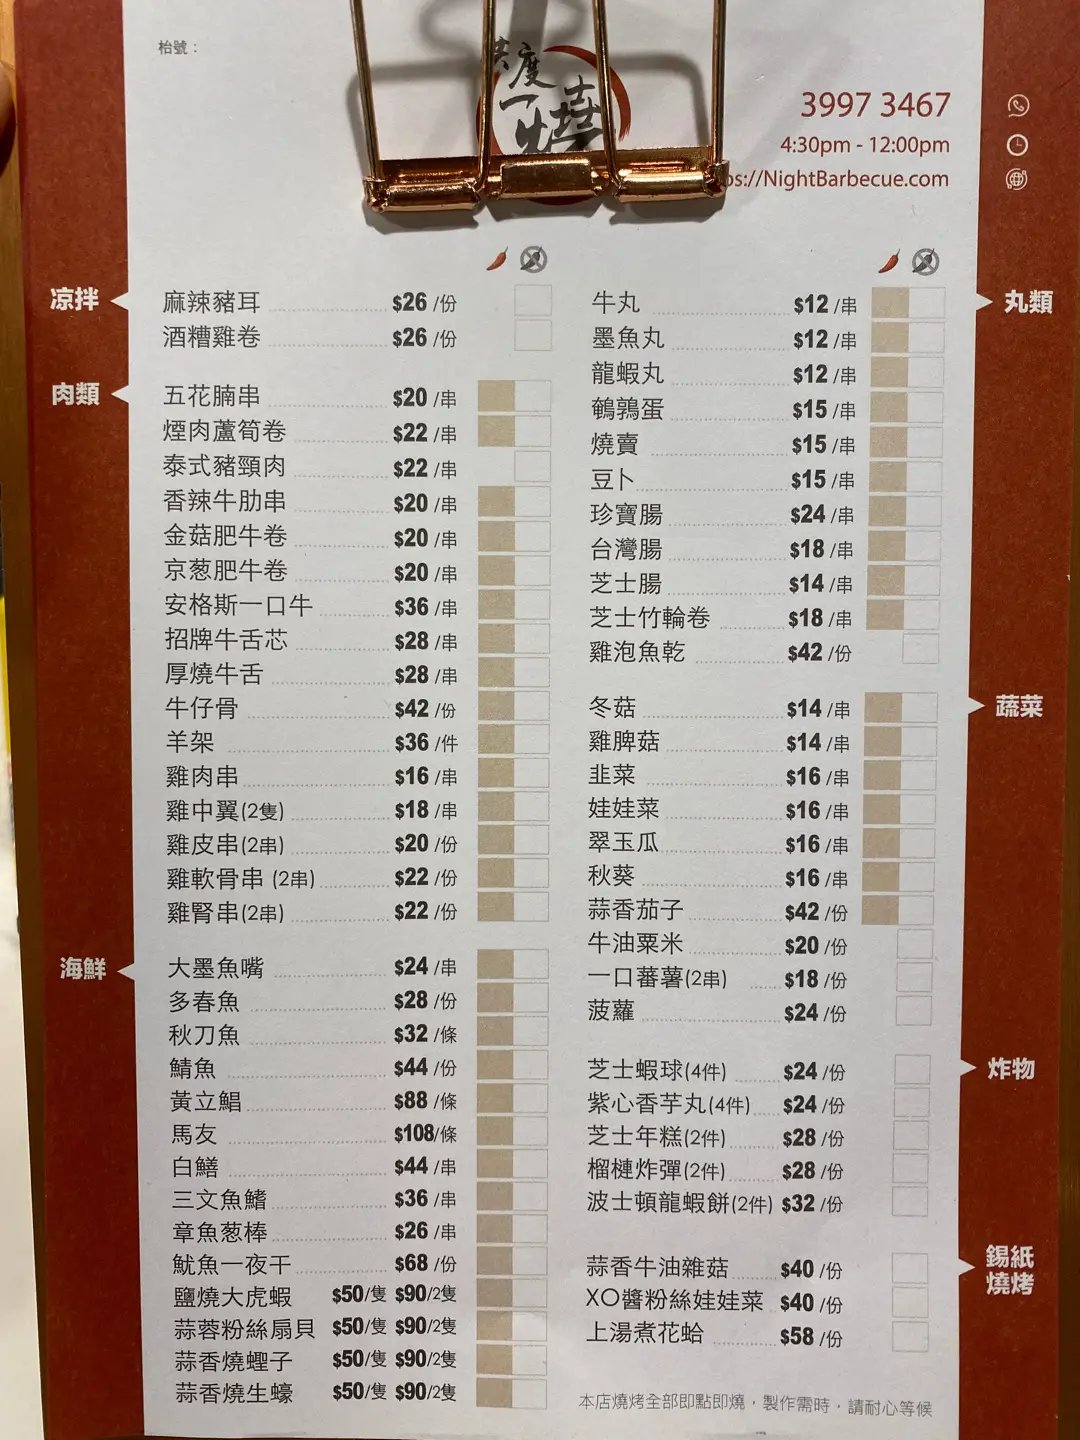 枱號：
共度
一燒
3997 3467
4:30pm - 12:00pm
ps://NightBarbecue.com
涼拌
麻辣豬耳 $26 /份
酒糟雞卷 $26 /份
肉類
五花腩串 $20 /串
煙肉蘆筍卷 $22 /串
泰式豬頸肉 $22 /串
香辣牛肋串 $20 /串
金菇肥牛卷 $20 /串
京葱肥牛卷 $20 /串
安格斯一口牛 $36 /串
招牌牛舌芯 $28 /串
厚燒牛舌 $28 /串
牛仔骨 $42 /份
羊架 $36 /件
雞肉串 $16 /串
雞中翼(2隻) $18 /串
雞皮串(2串) $20 /份
雞軟骨串 (2串) $22 /份
雞腎串(2串) $22 /份
海鮮
大墨魚嘴 $24 /串
多春魚 $28 /份
秋刀魚 $32 /條
鯖魚 $44 /份
黃立鯧 $88 /條
馬友 $108/條
白鱔 $44 /串
三文魚鰭 $36 /串
章魚葱棒 $26 /串
魷魚一夜干 $68 /份
鹽燒大虎蝦 $50/隻 $90/2隻
蒜蓉粉絲扇貝 $50/隻 $90/2隻
蒜香燒蟶子 $50/隻 $90/2隻
蒜香燒生蠔 $50/隻 $90/2隻
丸類
牛丸 $12 /串
墨魚丸 $12 /串
龍蝦丸 $12 /串
鵪鶉蛋 $15 /串
燒賣 $15 /串
豆卜 $15 /串
珍寶腸 $24 /串
台灣腸 $18 /串
芝士腸 $14 /串
芝士竹輪卷 $18 /串
雞泡魚乾 $42 /份
蔬菜
冬菇 $14 /串
雞脾菇 $14 /串
韭菜 $16 /串
娃娃菜 $16 /串
翠玉瓜 $16 /串
秋葵 $16 /串
蒜香茄子 $42 /份
牛油粟米 $20 /份
一口蕃薯(2串) $18 /份
菠蘿 $24 /份
炸物
芝士蝦球(4件) $24 /份
紫心香芋丸(4件) $24 /份
芝士年糕(2件) $28 /份
榴槤炸彈(2件) $28 /份
波士頓龍蝦餅(2件) $32 /份
錫紙
燒烤
蒜香牛油雜菇 $40 /份
XO醬粉絲娃娃菜 $40 /份
上湯煮花蛤 $58 /份
本店燒烤全部即點即燒，製作需時，請耐心等候